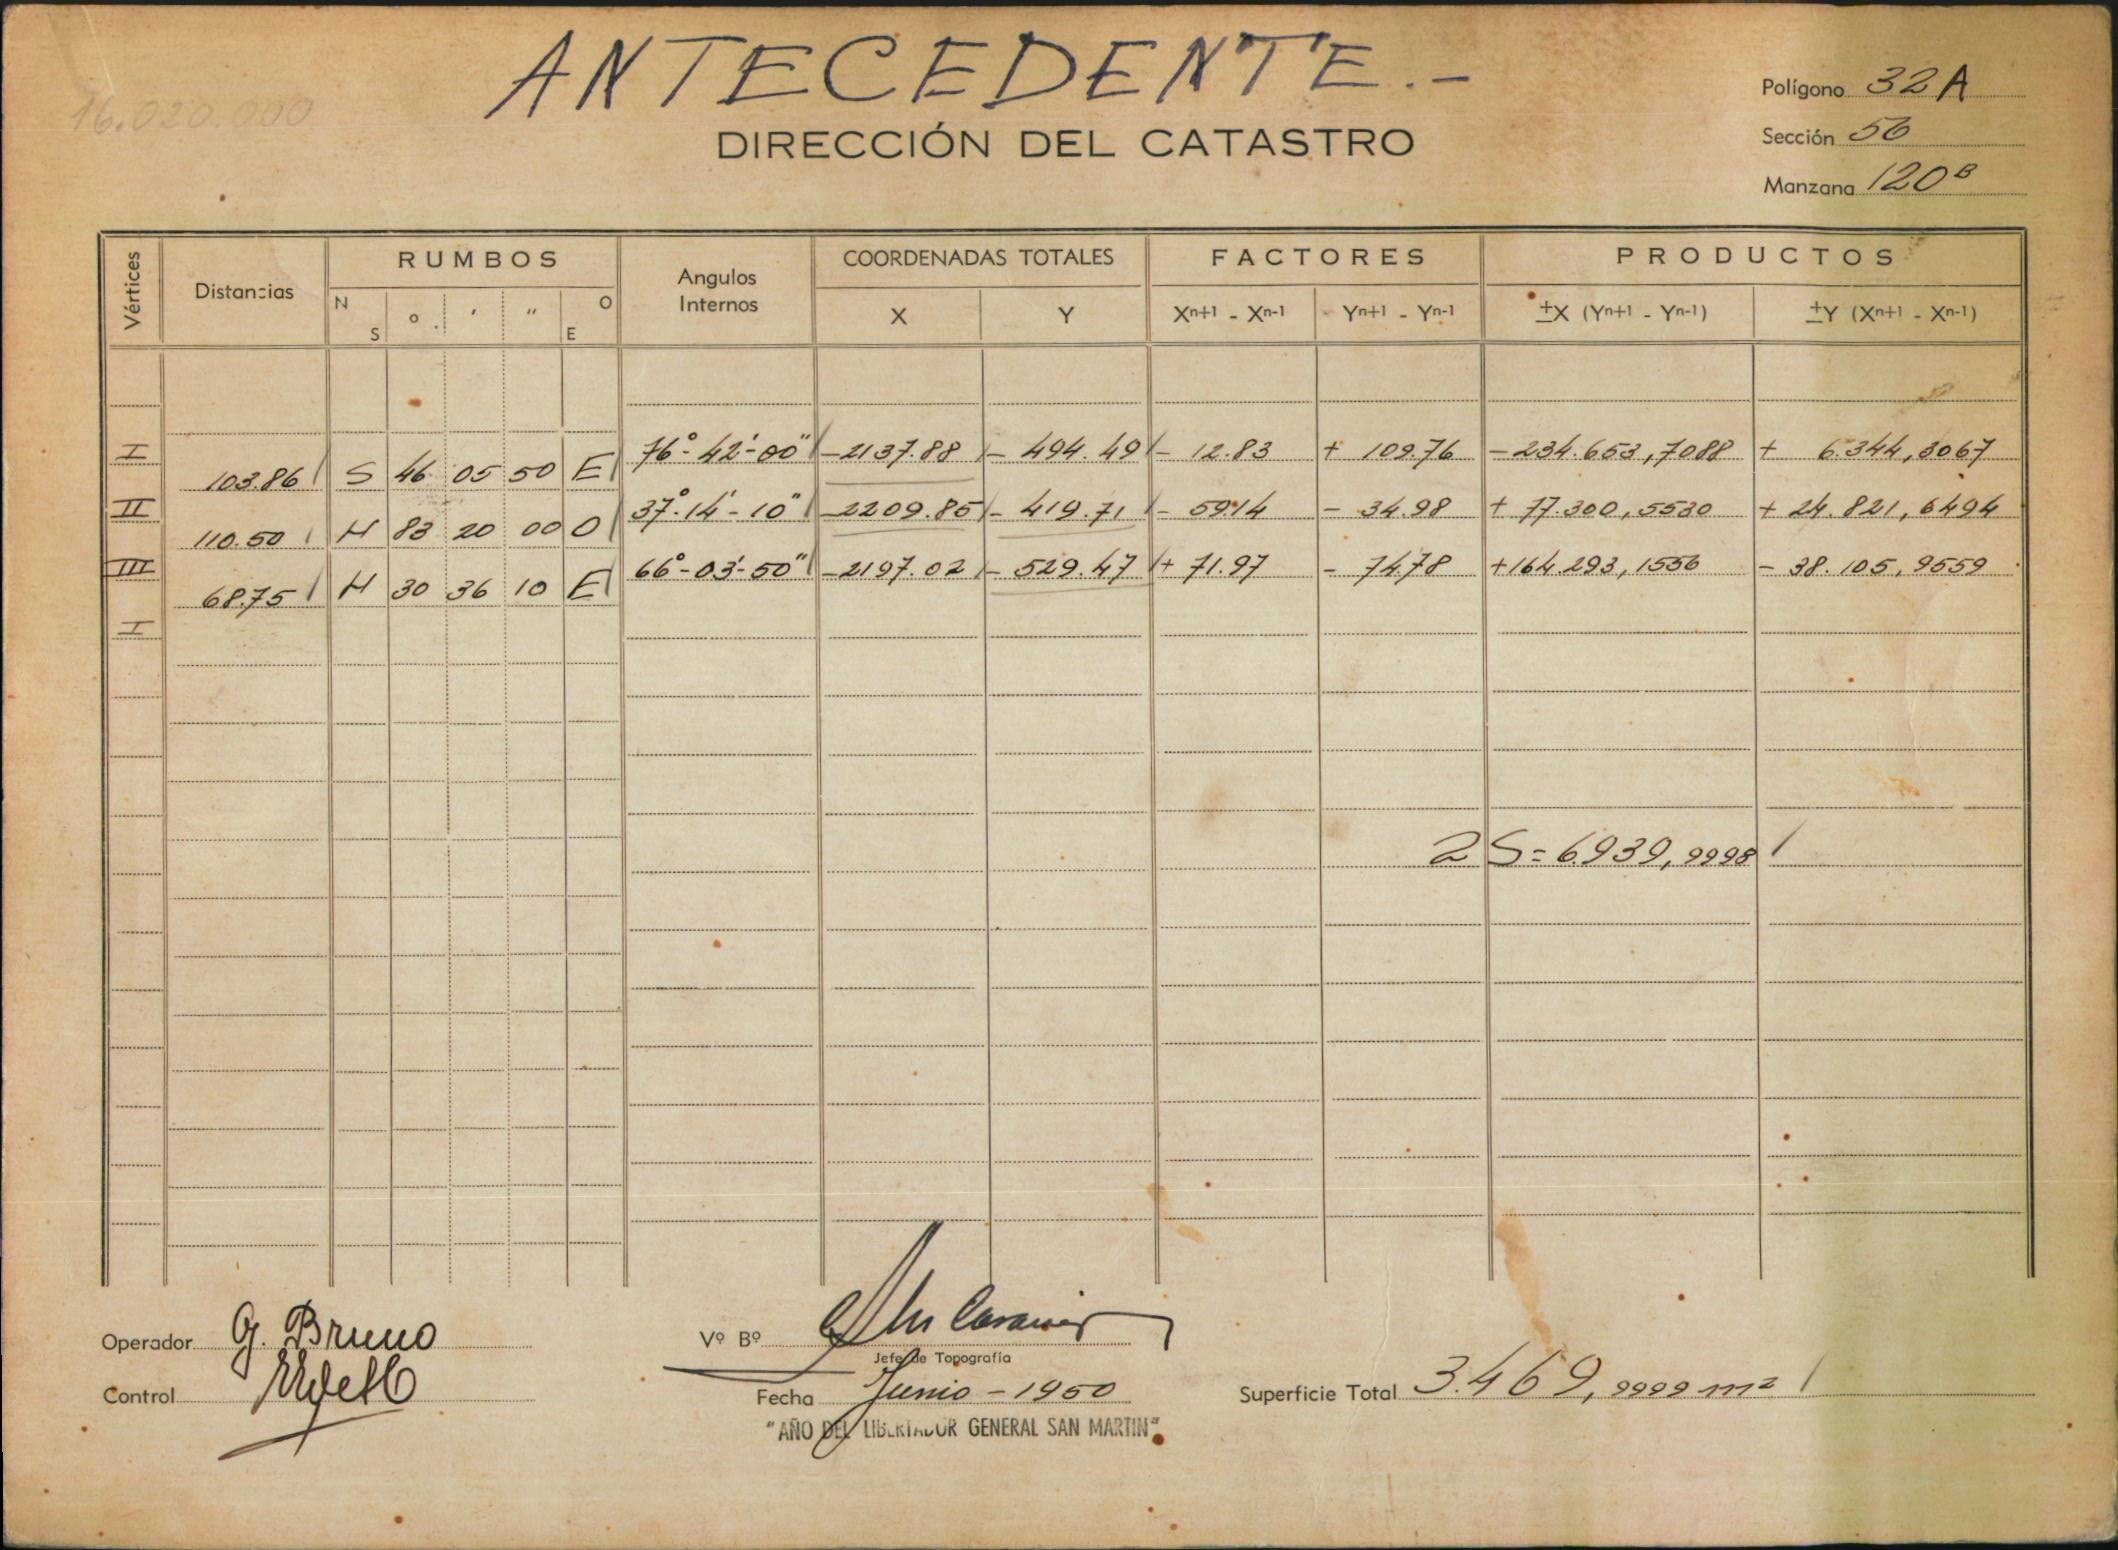 ANTECEDENTE.-
16.020.000
DIRECCIÓN DEL CATASTRO
Polígono 32A
Sección 56
Manzana 120B
Vértices
Distancias
RUMBOS
N S ° ' " O E
Angulos Internos
COORDENADAS TOTALES
X Y
FACTORES
Xn+1 - Xn-1 Yn+1 - Yn-1
PRODUCTOS
±X (Yn+1 - Yn-1) ±Y (Xn+1 - Xn-1)
I 76°-42'-00" -2137.88 - 494.49 - 12.83 + 109.76 -234.653,7088 + 6.344,3067
103.86 S 46 05 50 E
II 37°-14'-10" -2209.85 - 419.71 - 59.14 - 34.98 + 77.300,5530 + 24.821,6494
110.50 N 83 20 00 O
III 66°-03'-50" -2197.02 - 529.47 + 71.97 - 74.78 +164.293,1556 - 38.105,9559
68.75 N 30 36 10 E
I
2S=6.939,9998
Operador G. Bruno
Vº Bº
Jefe de Topografía
Control
Fecha Junio - 1950
Superficie Total 3.469,9999 m2
"AÑO DEL LIBERTADOR GENERAL SAN MARTIN"